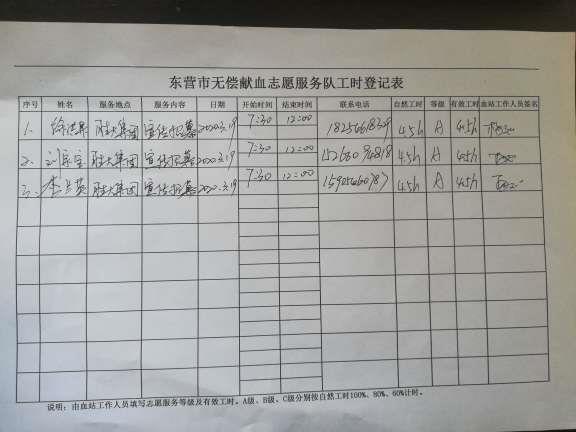 东营市无偿献血志愿服务队工时登记表
序号 姓名 服务地点 服务内容 日期 开始时间 结束时间 联系电话 自然工时 等级 有效工时 血站工作人员签名
1. 胜大集团 宣传招募 2020.3.19 7:30 12:00 4.5h A 4.5h
2. 胜大集团 宣传招募 2020.3.19 7:30 12:00 4.5h A 4.5h
3. 胜大集团 宣传招募 2020.3.19 7:30 12:00 4.5h A 4.5h
说明：由血站工作人员填写志愿服务等级及有效工时。A级、B级、C级分别按自然工时100%、80%、60%计时。